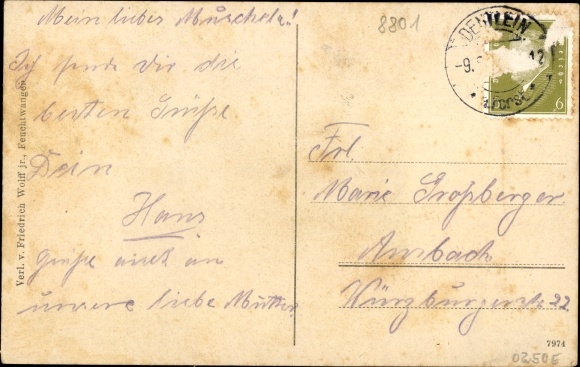 Mein liebes Muscherla!
Ich sende Dir die
besten Grüße.
Dein
Hans
Grüße auch an
unsere liebe Mutter
8801
DENTLEIN
-9. 12
6
Frl.
Marie Großberger
Ansbach
Würzburgerstr. 22
Verl. v. Friedrich Wolff jr., Feuchtwangen
7974
0250E